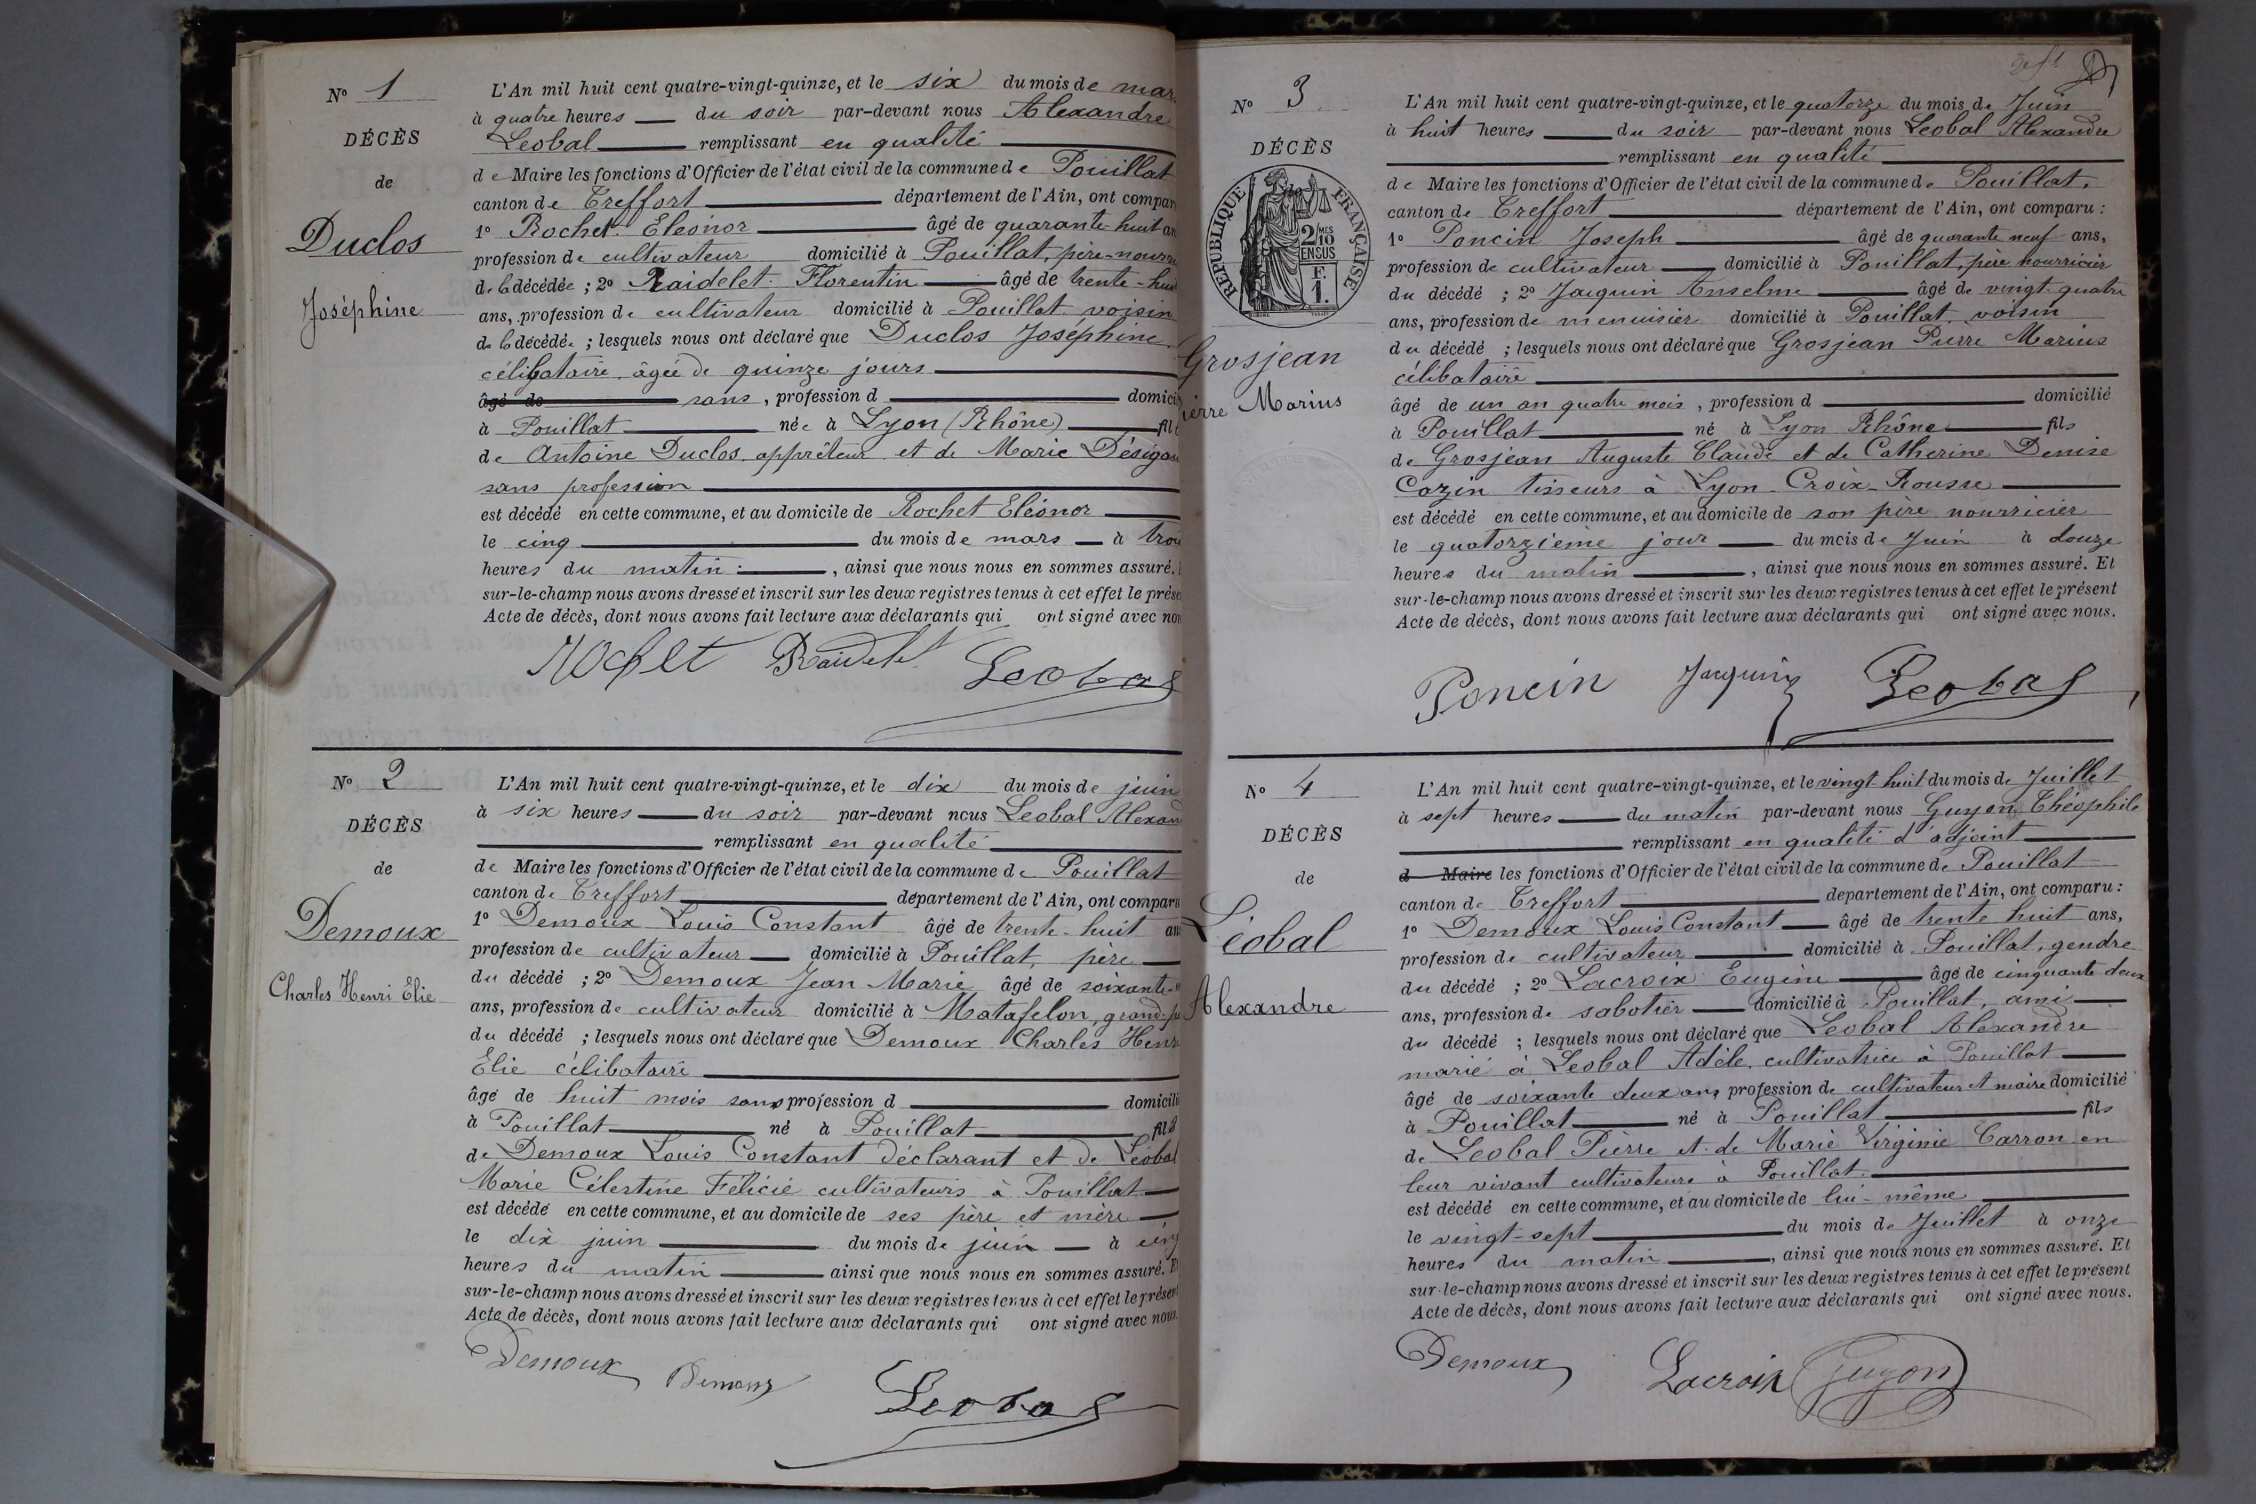 N° 1
DÉCÈS
de
Duclos
Joséphine
L'An mil huit cent quatre-vingt-quinze, et le six du mois de mar
à quatre heures du soir par-devant nous Alexandre
Leobal remplissant en qualité
de Maire les fonctions d'Officier de l'état civil de la commune de Pouillat
canton de Treffort département de l'Ain, ont compar
1° Rochet Eléonor âgé de quarante-huit an
profession de cultivateur domicilié à Pouillat, père-nourri
de la décédée ; 2° Raidelet Florentin âgé de trente-hui
ans, profession de cultivateur domicilié à Pouillat voisin
de la décédée ; lesquels nous ont déclaré que Duclos Joséphine
célibataire âgée de quinze jours
âgé de sans, profession d domici
à Pouillat née à Lyon (Rhône) fil
de Antoine Duclos, apprêteur et de Marie
sans profession
est décédé en cette commune, et au domicile de Rochet Eléonor
le cinq du mois de mars à troi
heures du matin, ainsi que nous nous en sommes assuré.
sur-le-champ nous avons dressé et inscrit sur les deux registres tenus à cet effet le prése
Acte de décès, dont nous avons fait lecture aux déclarants qui ont signé avec nou
Rochet Raidelet Leobal
N° 2
DÉCÈS
de
Demoux
Charles Henri Elie
L'An mil huit cent quatre-vingt-quinze, et le dix du mois de juin
à six heures du soir par-devant nous Leobal Alexan
remplissant en qualité
de Maire les fonctions d'Officier de l'état civil de la commune de Pouillat
canton de Treffort département de l'Ain, ont comparu
1° Demoux Louis Constant âgé de trente-huit an
profession de cultivateur domicilié à Pouillat, père
du décédé ; 2° Demoux Jean-Marie âgé de soixante-
ans, profession de cultivateur domicilié à Matafelon, grand-pè
du décédé ; lesquels nous ont déclaré que Demoux Charles Henri
Elie célibataire
âgé de huit mois sans profession d domicili
à Pouillat né à Pouillat fils
de Demoux Louis Constant déclarant et de Léobal
Marie Célestine Félicie cultivateurs à Pouillat
est décédé en cette commune, et au domicile de ses père et mère
le dix juin du mois de juin à cinq
heures du matin ainsi que nous nous en sommes assuré. Et
sur-le-champ nous avons dressé et inscrit sur les deux registres tenus à cet effet le présent
Acte de décès, dont nous avons fait lecture aux déclarants qui ont signé avec nous.
Demoux Demoux Leobal
N° 3
DÉCÈS
RÉPUBLIQUE FRANÇAISE
2/10 MES
EN SUS
F.
1.
Grosjean
ierre Marius
L'An mil huit cent quatre-vingt-quinze, et le quatorze du mois de Juin
à huit heures du soir par-devant nous Leobal Alexandre
remplissant en qualité
de Maire les fonctions d'Officier de l'état civil de la commune de Pouillat.
canton de Treffort département de l'Ain, ont comparu :
1° Poncin Joseph âgé de quarante neuf ans,
profession de cultivateur domicilié à Pouillat, père nourricier
du décédé ; 2° Jacquin Anselme âgé de vingt-quatre
ans, profession de menuisier domicilié à Pouillat voisin
du décédé ; lesquels nous ont déclaré que Grosjean Pierre Marius
célibataire
âgé de un an quatre mois, profession d domicilié
à Pouillat né à Lyon Rhône fils
de Grosjean Auguste Claude et de Catherine Denise
Cozin tisseurs à Lyon-Croix-Rousse
est décédé en cette commune, et au domicile de son père nourricier
le quatorzième jour du mois de Juin à douze
heures du matin, ainsi que nous nous en sommes assuré. Et
sur-le-champ nous avons dressé et inscrit sur les deux registres tenus à cet effet le présent
Acte de décès, dont nous avons fait lecture aux déclarants qui ont signé avec nous.
Poncin Jacquin Leobal
N° 4
DÉCÈS
de
Léobal
Alexandre
L'An mil huit cent quatre-vingt-quinze, et le vingt huit du mois de Juillet
à sept heures du matin par-devant nous Guyon Théophile
remplissant en qualité d'adjoint
d Maire les fonctions d'Officier de l'état civil de la commune de Pouillat
canton de Treffort département de l'Ain, ont comparu :
1° Demoux Louis Constant âgé de trente huit ans,
profession de cultivateur domicilié à Pouillat, gendre
du décédé ; 2° Lacroix Eugène âgé de cinquante deux
ans, profession de sabotier domicilié à Pouillat, ami
du décédé ; lesquels nous ont déclaré que Leobal Alexandre
marié à Leobal Adèle, cultivatrice à Pouillat
âgé de soixante deux ans profession de cultivateur et maire domicilié
à Pouillat né à Pouillat fils
de Leobal Pierre et de Marie Virginie Carron en
leur vivant cultivateurs à Pouillat.
est décédé en cette commune, et au domicile de lui-même
le vingt-sept du mois de Juillet à onze
heures du matin, ainsi que nous nous en sommes assuré. Et
sur-le-champ nous avons dressé et inscrit sur les deux registres tenus à cet effet le présent
Acte de décès, dont nous avons fait lecture aux déclarants qui ont signé avec nous.
Demoux Lacroix Guyon